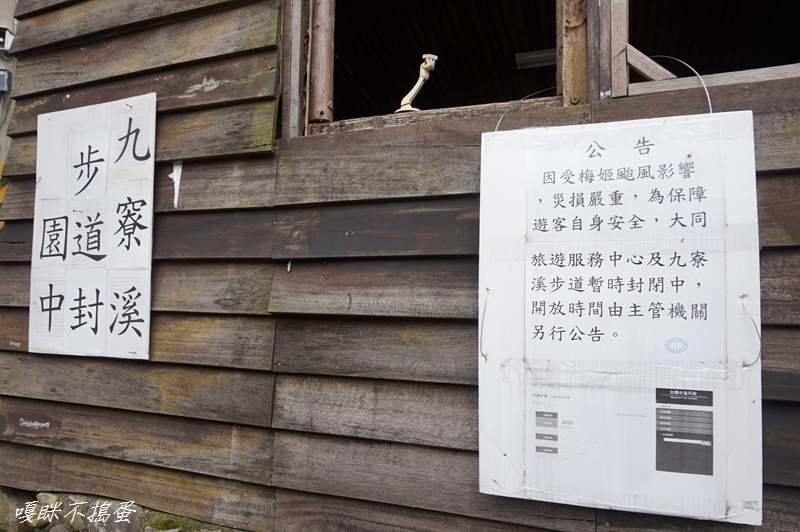 九寮溪
步道封
園中
公告
因受梅姬颱風影響
，災損嚴重，為保障
遊客自身安全，大同
旅遊服務中心及九寮
溪步道暫時封閉中，
開放時間由主管機關
另行公告。
嘎眯不搗蛋